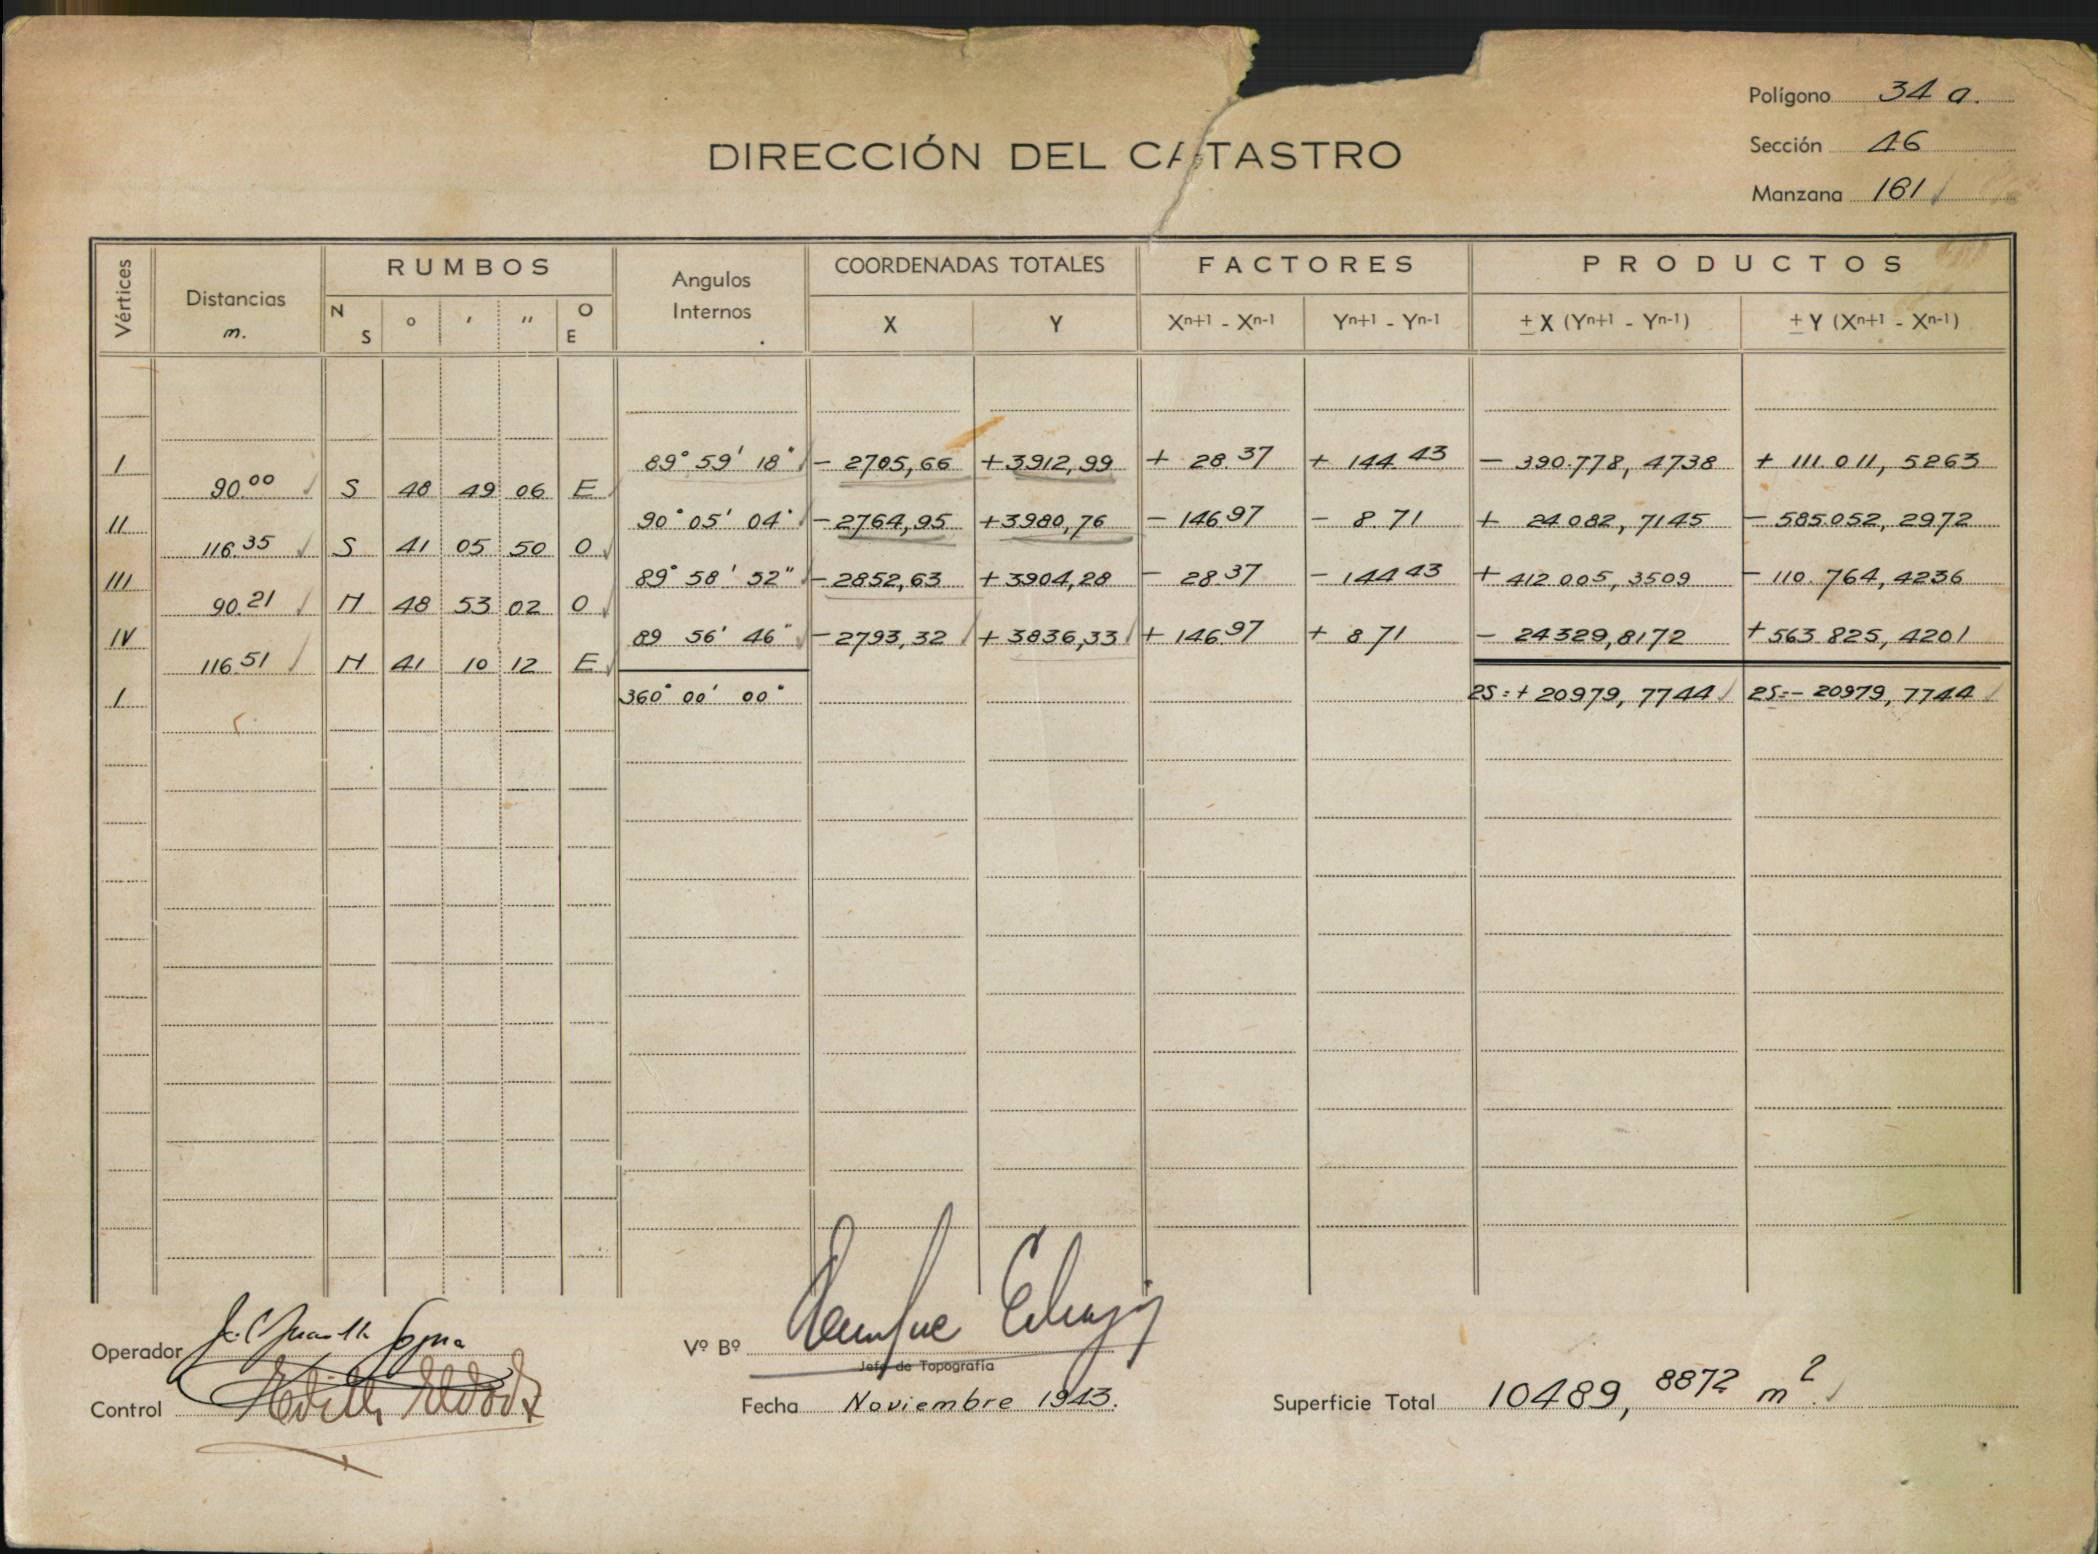 Polígono 34 a.
Sección 46
Manzana 161
DIRECCIÓN DEL CATASTRO
Vértices
Distancias m.
RUMBOS
N S ° ' " O E
Angulos Internos
COORDENADAS TOTALES
X Y
FACTORES
Xn+1 - Xn-1 Yn+1 - Yn-1
PRODUCTOS
± X (Yn+1 - Yn-1) ± Y (Xn+1 - Xn-1)
I 89° 59' 18" - 2705,66 +3912,99 + 28.37 + 144 43 - 390.778, 4738 + 111.011, 5263
90.00 S 48 49 06 E
II 90° 05' 04" - 2764,95 +3980,76 - 146.97 - 8.71 + 24.082, 7145 - 585.052, 2972
116.35 S 41 05 50 O
III 89° 58' 52" - 2852,63 + 3904,28 - 28.37 - 144 43 + 412.005, 3509 - 110.764, 4236
90.21 N 48 53 02 O
IV 89 56' 46" - 2793,32 + 3836,33 + 146.97 + 8 71 - 24.329,8172 + 563.825, 4201
116.51 N 41 10 12 E
I 360° 00' 00" 2S:+ 20979, 7744 2S=- 20979, 7744
Operador
Vº Bº
Jefe de Topografía
Control
Fecha Noviembre 1943.
Superficie Total 10489, 8872 m2.